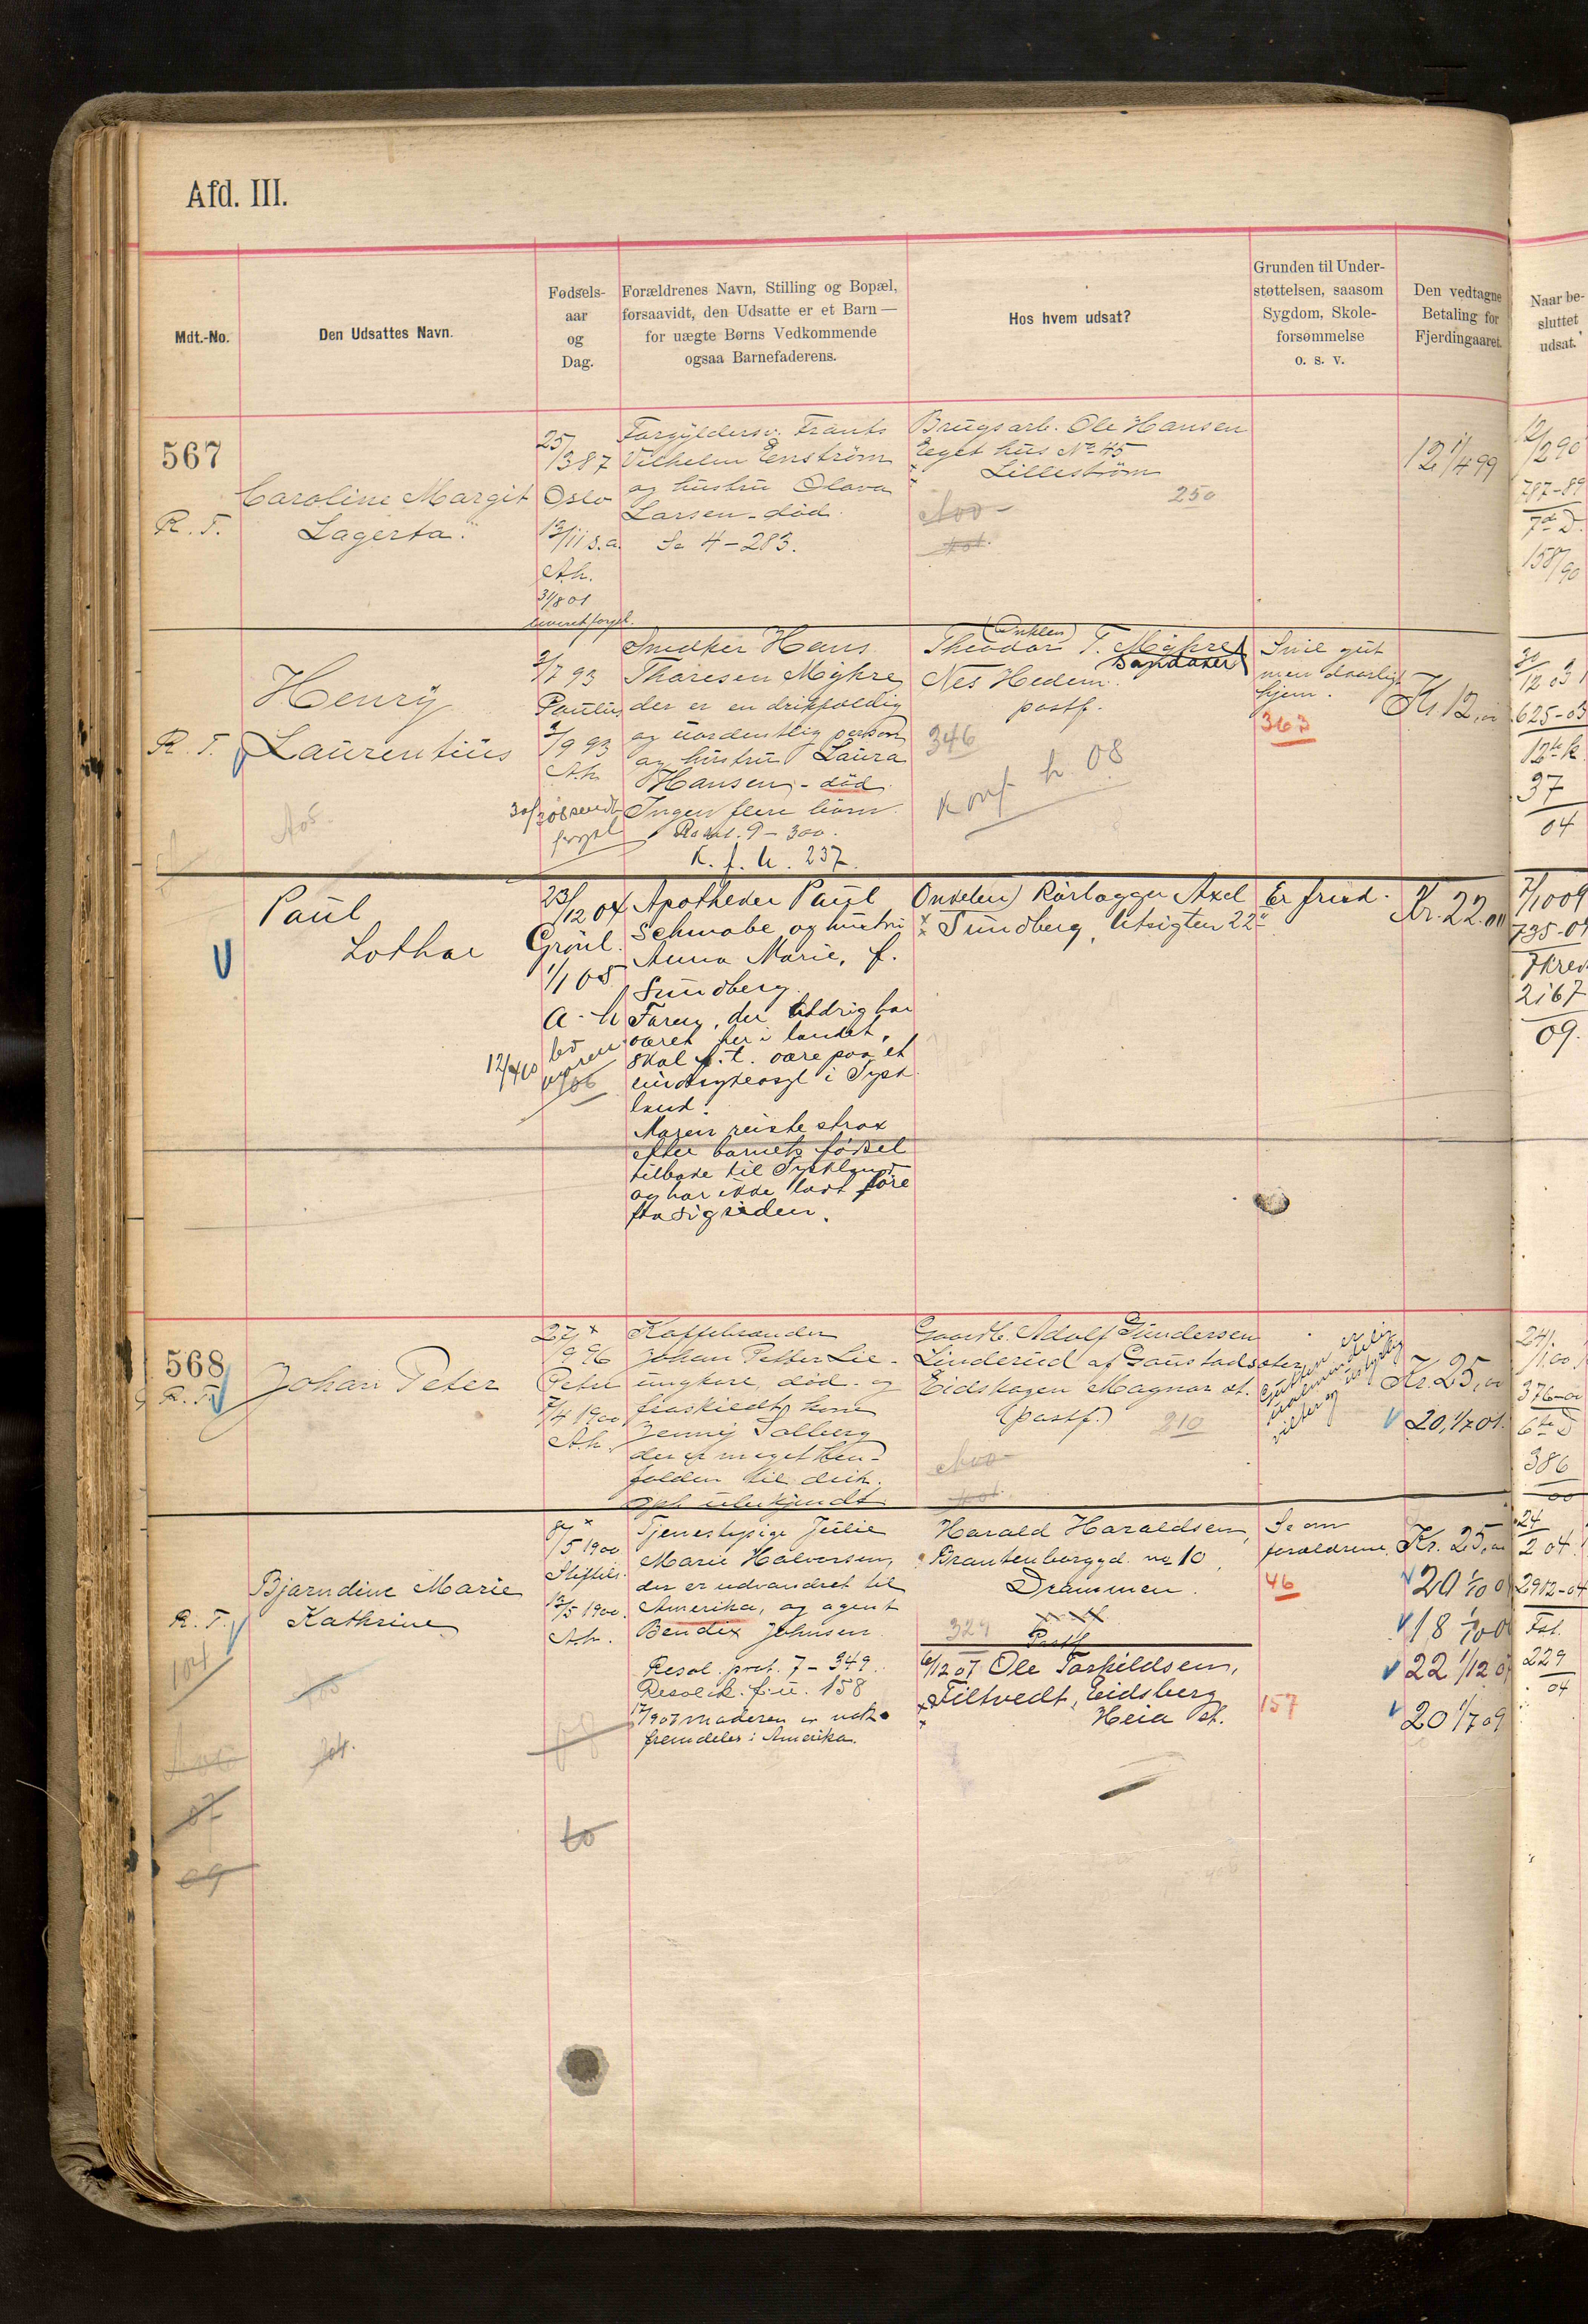 Afd. III.
Mdt.-No.
Den Udsattes Navn.
Fødsels-
aar
og
Dag.
Forældrenes Navn, Stilling og Bopæl,
forsaavidt, den Udsatte er et Barn —
for uægte Børns Vedkommende
ogsaa Barnefaderens.
Hos hvem udsat?
Grunden til Under-
støttelsen, saasom
Sygdom, Skole-
forsømmelse
o. s. v.
Den vedtagne
Betaling for
Fjerdingaaret.
Naar be-
sluttet
udsat.
567
R. F.
Caroline Margit
Lagerta
25/
1387
Oslo
12/11 s.a.
Ah.
31/8 01
Forgyldersv. Frants
Vilhelm Enström
og hustru Olava
Larsen - död.
Se 4-283.
Brugsarb. Ole Hansen
Eget hus No 45
Lilleström
250
12 1/4 99
12/290
787-89
7de D.
158/90
R. F.
Henry
Laurentius
2/7 93
Paulus
2/9 93
Ah
Smedker Hans
Thoresen Myhre
der er en drikfældig
og uordentlig person
og hustru Laura
Hansen - död
Ingen flere börn
9-300.
K. f. u. 237
Onklen
Theodor T. Myhre
Nes Hedem.
postf.
346
Konf. h 08
Snil gut
men daarligt
hjem.
363
Kr. 12,00
30/12 03
625-03
12te k.
37
04
Paul
Lothar
23/12 04
Grönl.
1/1 05
a-h
12/4 10
Apotheker Paul
Schwabe og hustru
Anna Marie, f.
Sundberg.
Faren, der aldrig har
været her i landet,
skal p.t. være paa et
sindsygeasyl i Tysk
land.
Moren reiste strax
efter barnets fødsel
tilbage til Tyskland
og har ikke ladt høre
fra sig siden.
Onkelen Axel
Sundberg, Utsigten 22
Er frisk.
Kr. 22.00
7/10 09
735-09
7 kred
2167
09.
568
R. F.
Johan Peter
27/9 96
Petri
7/4 1900
Ah.
Kaffebrænder
Johan Petter Lie -
ungkarl, död - og
fraskildt kone
Jenny Solberg
der er meget hen-
falden til drik.
Gaardb. Adolf Gundersen
Linderud af Gaustadsæter
Eidskogen Magnor st.
(postf.)
210
Kr. 25,00
20, 1/7 01.
24/
376-00
6te D
386
00
R. F.
Bjarndine Marie
Kathrine
8/5 1900
13/5 1900.
Ah.
Tjenestepige Julie
Marie Halvorsen,
der er udvandret til
Amerika, og agent
Bendix Johnsen
Resol. prot. 7-349.
Resol k. f. u. 158
17/9 07 moderen er nok
fremdeles i Amerika.
Harald Haraldsen,
Brantenborggd. no 10
Drammen.
329
Postf
6/12 07 Ole Torkildsen,
Tiltvedt, Eidsberg
Heia st.
Se om
forældrene
46
157
Kr. 25,00
20
18
22 1/12 07
20 1/7 09
24/2 04
2912-04
Fst.
229
04
104
04.
07
09
10